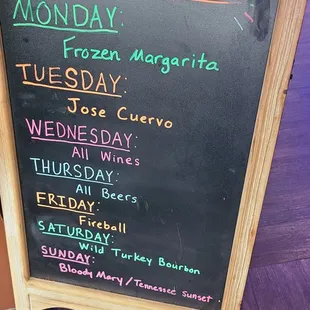 MONDAY:
Frozen Margarita
TUESDAY:
Jose Cuervo
WEDNESDAY:
All Wines
THURSDAY:
All Beers
FRIDAY:
Fireball
SATURDAY:
Wild Turkey Bourbon
SUNDAY:
Bloody Mary / Tennessee Sunset